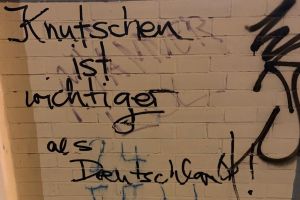 Knutschen
ist
wichtiger
als
Deutschland!